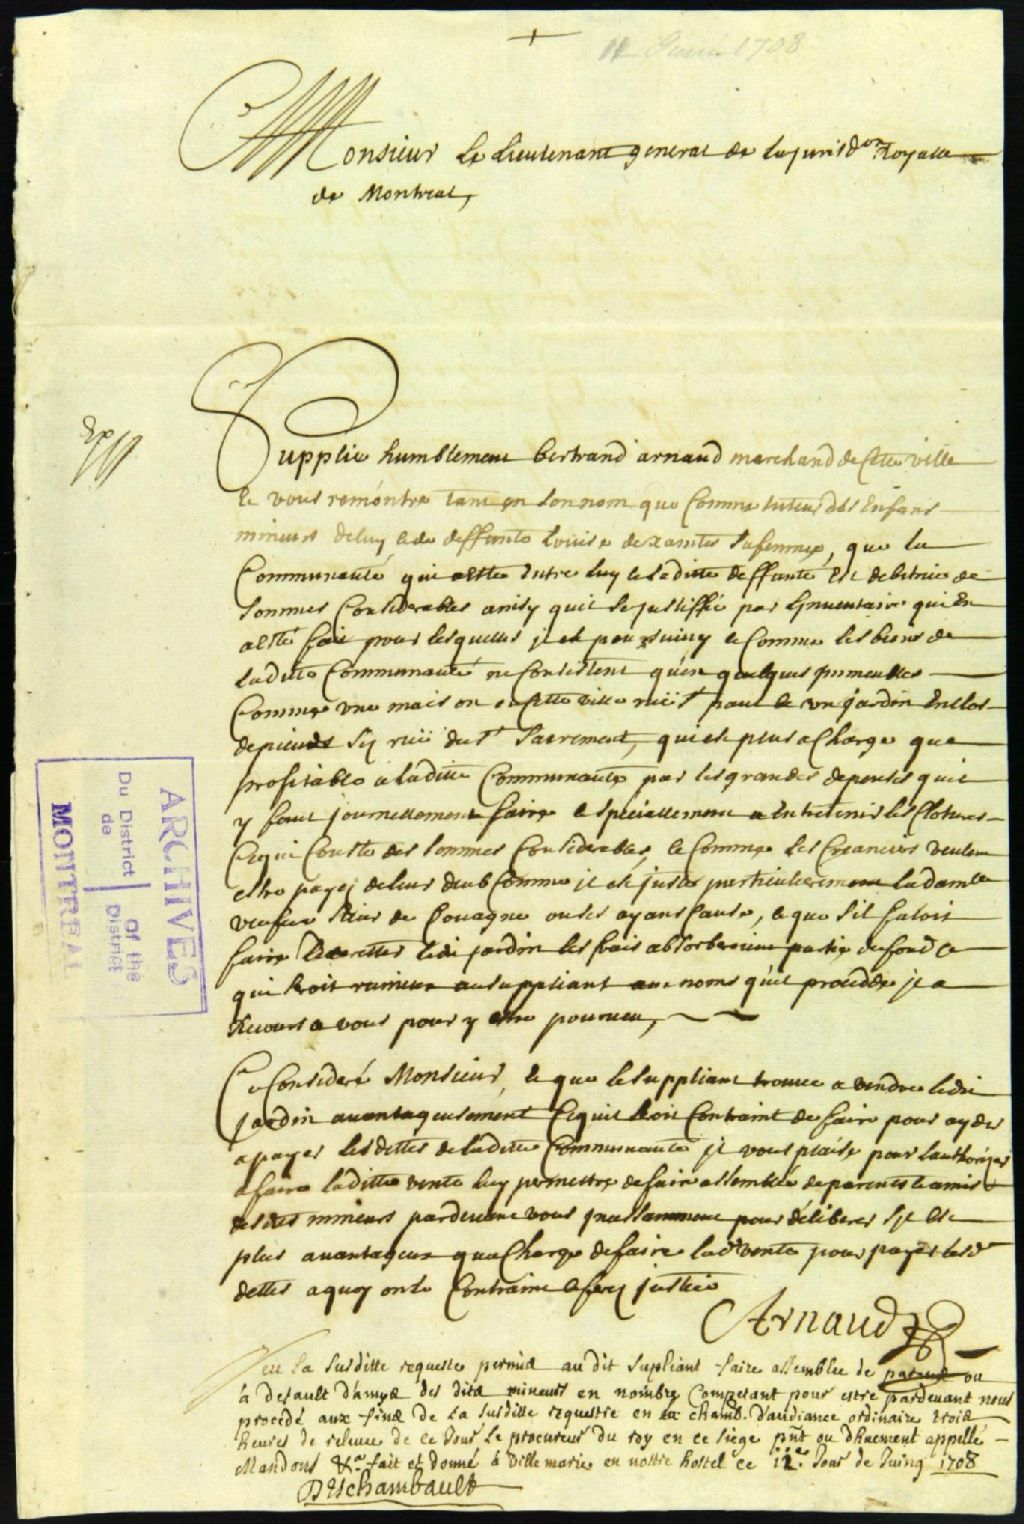 11 Juin 1708
Monsieur Le Lieutenant general de la jurisd.on Royalle
de Montreal,
Exp
Supplie humblement bertrand arnaud marchand de Cette ville
Et vous remontre tant en son nom que Comme tuteur des Enfans
mineurs de luy & de deffunte Louise de xaintes sa femme, que la
Communauté qui a esté Entre luy & laditte deffunte Est debitrice de
sommes Considerables ainsy quil se justiffie par Linventaire qui En
a esté fait pour lesquelles il est poursuivy & Comme les biens de
ladite Communauté ne Consistent qu'en quelques immeubles
Comme une maison en Cette ville rüe St paul & un jardin Enclos
de pieux Sis rüe du St Sacrement, qui est plus a Charge que
profitable a ladite Communauté par les grandes depenses quil
y faut journellement faire & specialement a Entretenir les Clotures
Ce qui Couste des sommes Considerables, & Comme les Creanciers veulent
estre payez de leurs deub Comme il est juste particulierement la dam.lle
veufve Sieur de Couagne ou ses ayans Cause, & que s'il faloit
faire decretter ledit jardin les frais absorberoient partie du fond Ce
qui seroit ruineux au suppliant aux noms qu'il procedde il a
Recours a vous pour y estre pourveu,
Ce Consideré Monsieur, & que le suppliant trouve a vendre ledit
jardin avantageusement Ce quil seroit Contraint de faire pour ayder
a payer les dettes de ladite Communauté il vous plaise pour l'authoriser
a faire ladite vente luy permettre de faire assemblée de parents & amis
des dits mineurs pardevant vous incessamment pour déliberer s'il Est
plus avantageux qu'a Charge de faire lade vente pour payer lesd.
dettes a quoy on le Contraint & ferez justice
Arnaud
Veu la susditte requeste permis au dit supliant faire assemblee de parens ou
à defaut d'amys des dits mineurs en nombre Competant pour estre pardevant nous
procédé aux fins de la susditte requestre en la chamb. d'audiance ordinaire trois
heures de relevee de ce Jour Le procureur du roy en ce siege pnt ou dhuement appellé
Mandons &a fait et donné à Villemarie en nostre hostel ce 12e Jour de Juing 1708
Deschambault
ARCHIVES
Du District | Of the
de | District
MONTREAL